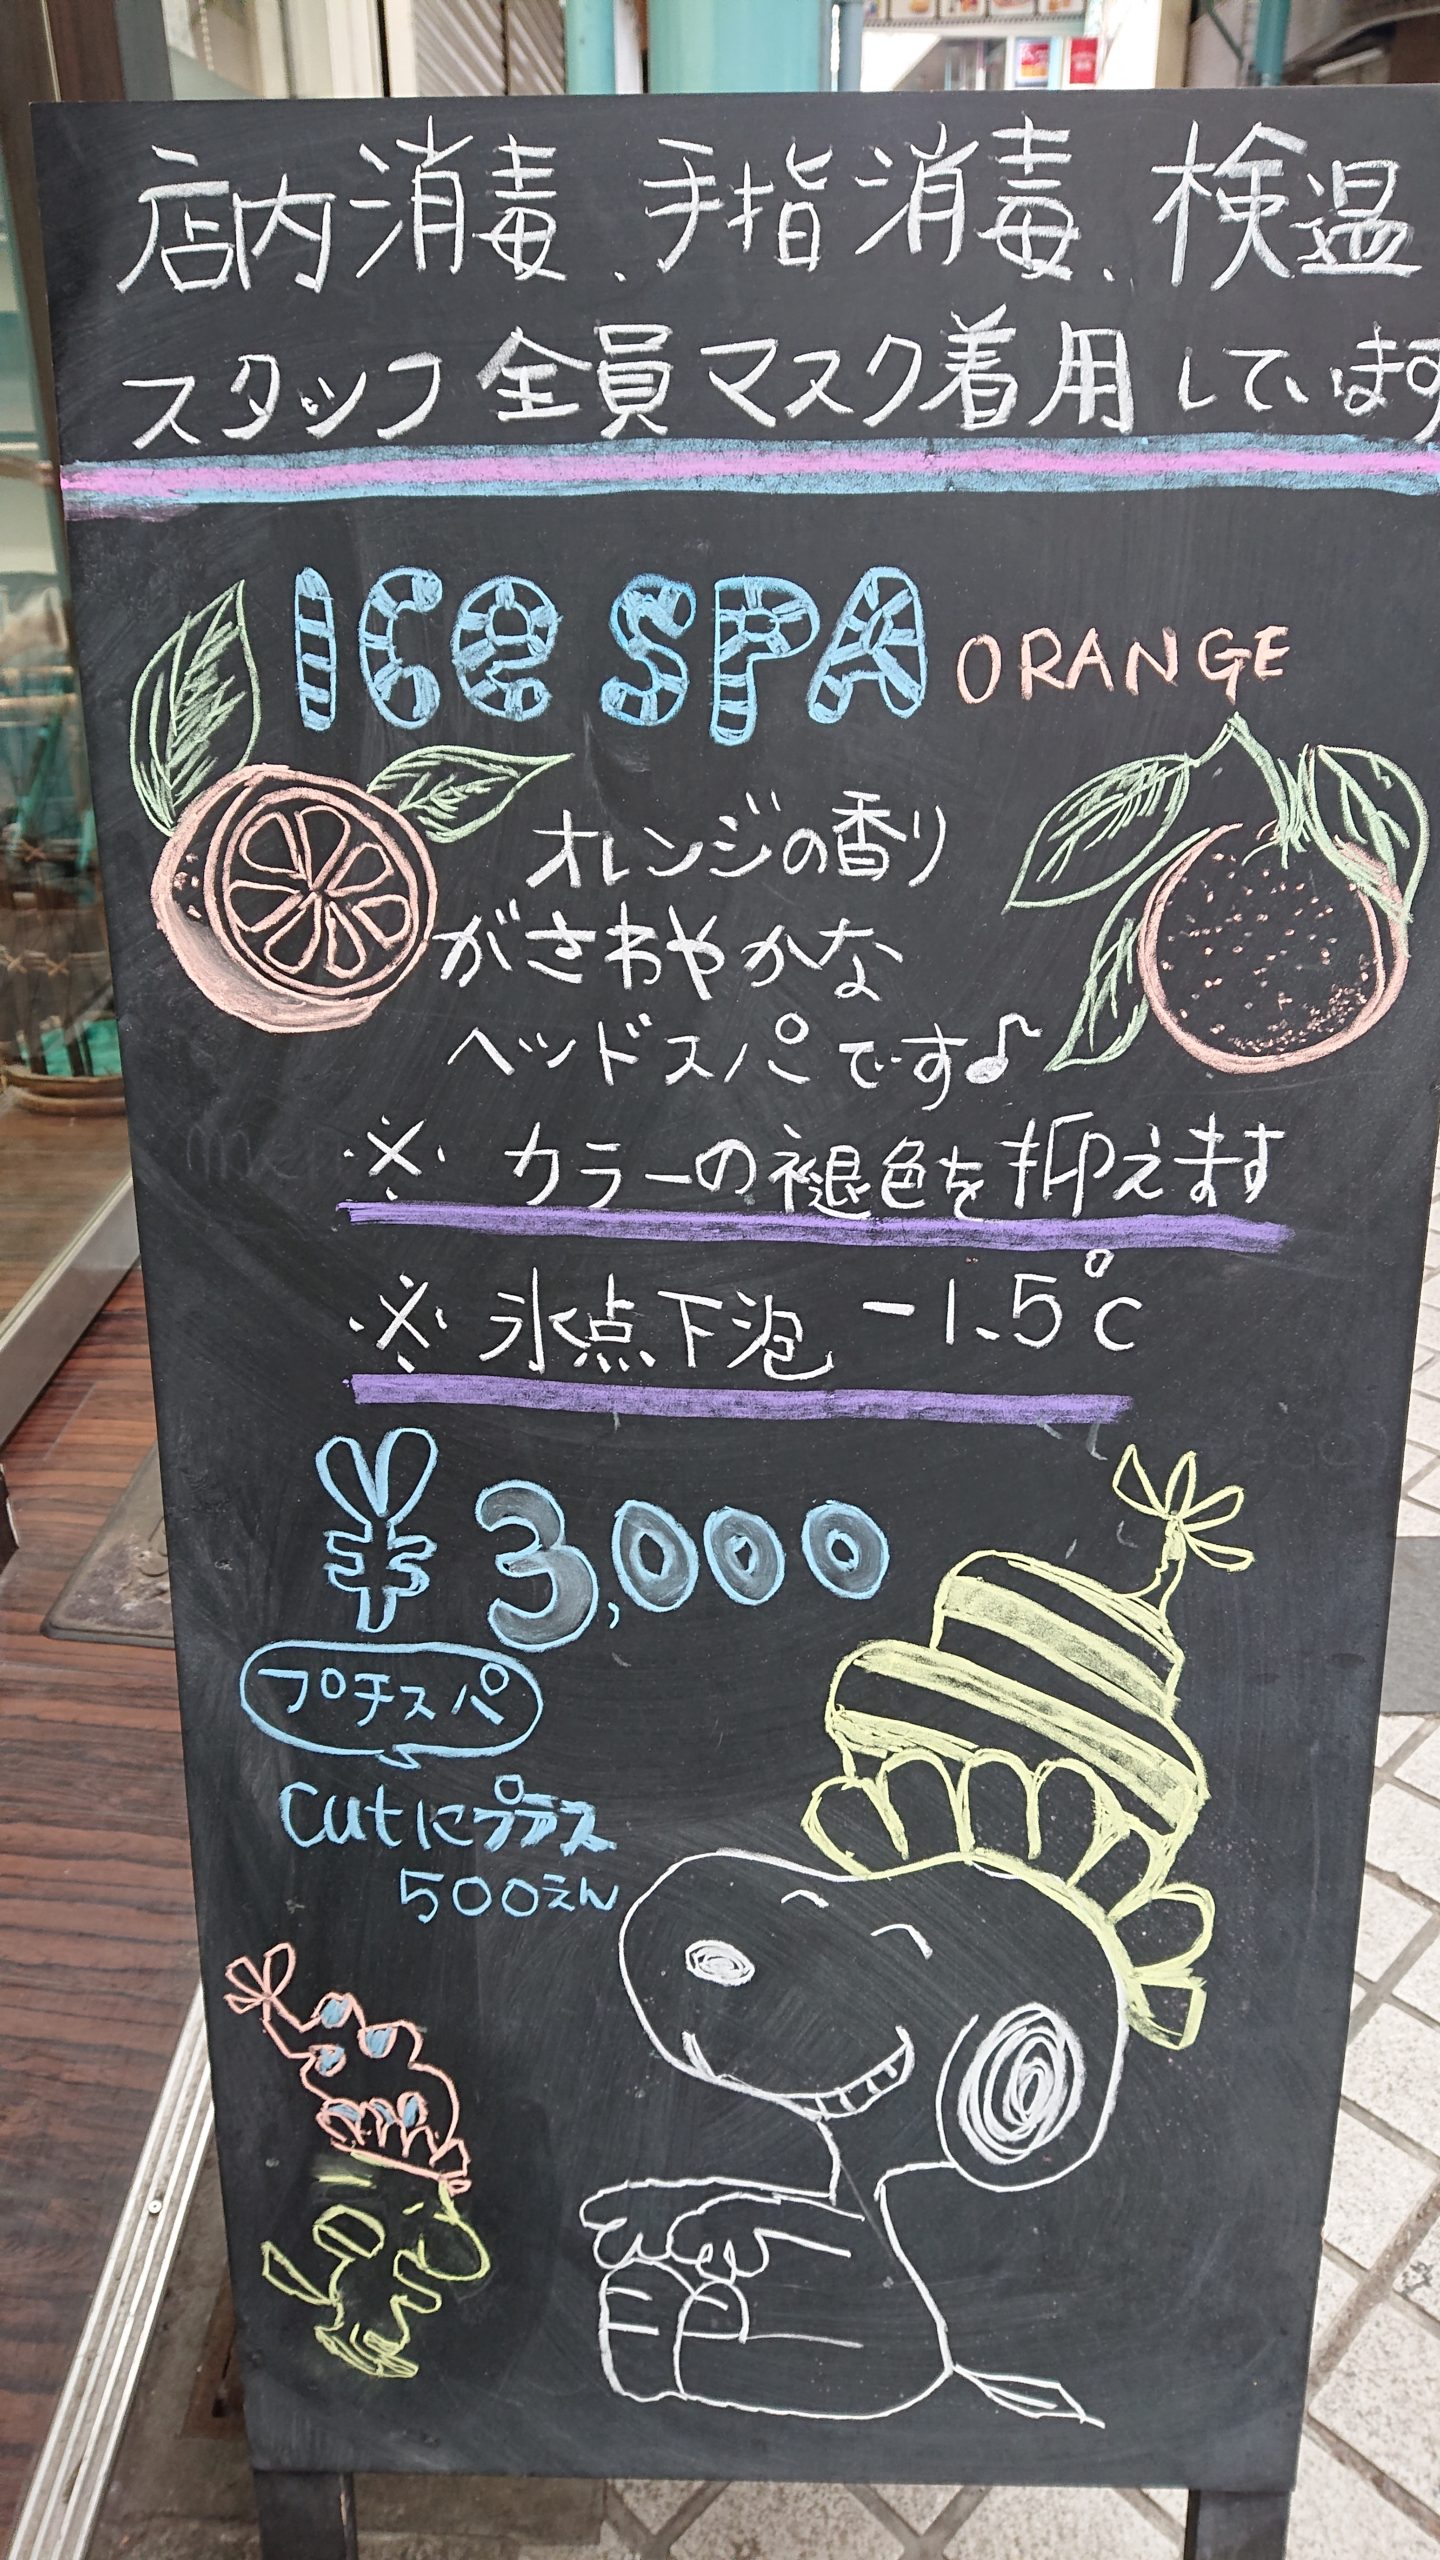 店内消毒、手指消毒、検温
スタッフ全員マスク着用しています
ICe SPA ORANGE
オレンジの香り
がさわやかな
ヘッドスパです♪
※ カラーの褪色を抑えます
※ 氷点下泡 -1.5℃
¥3,000
プチスパ
cutにプラス
500えん